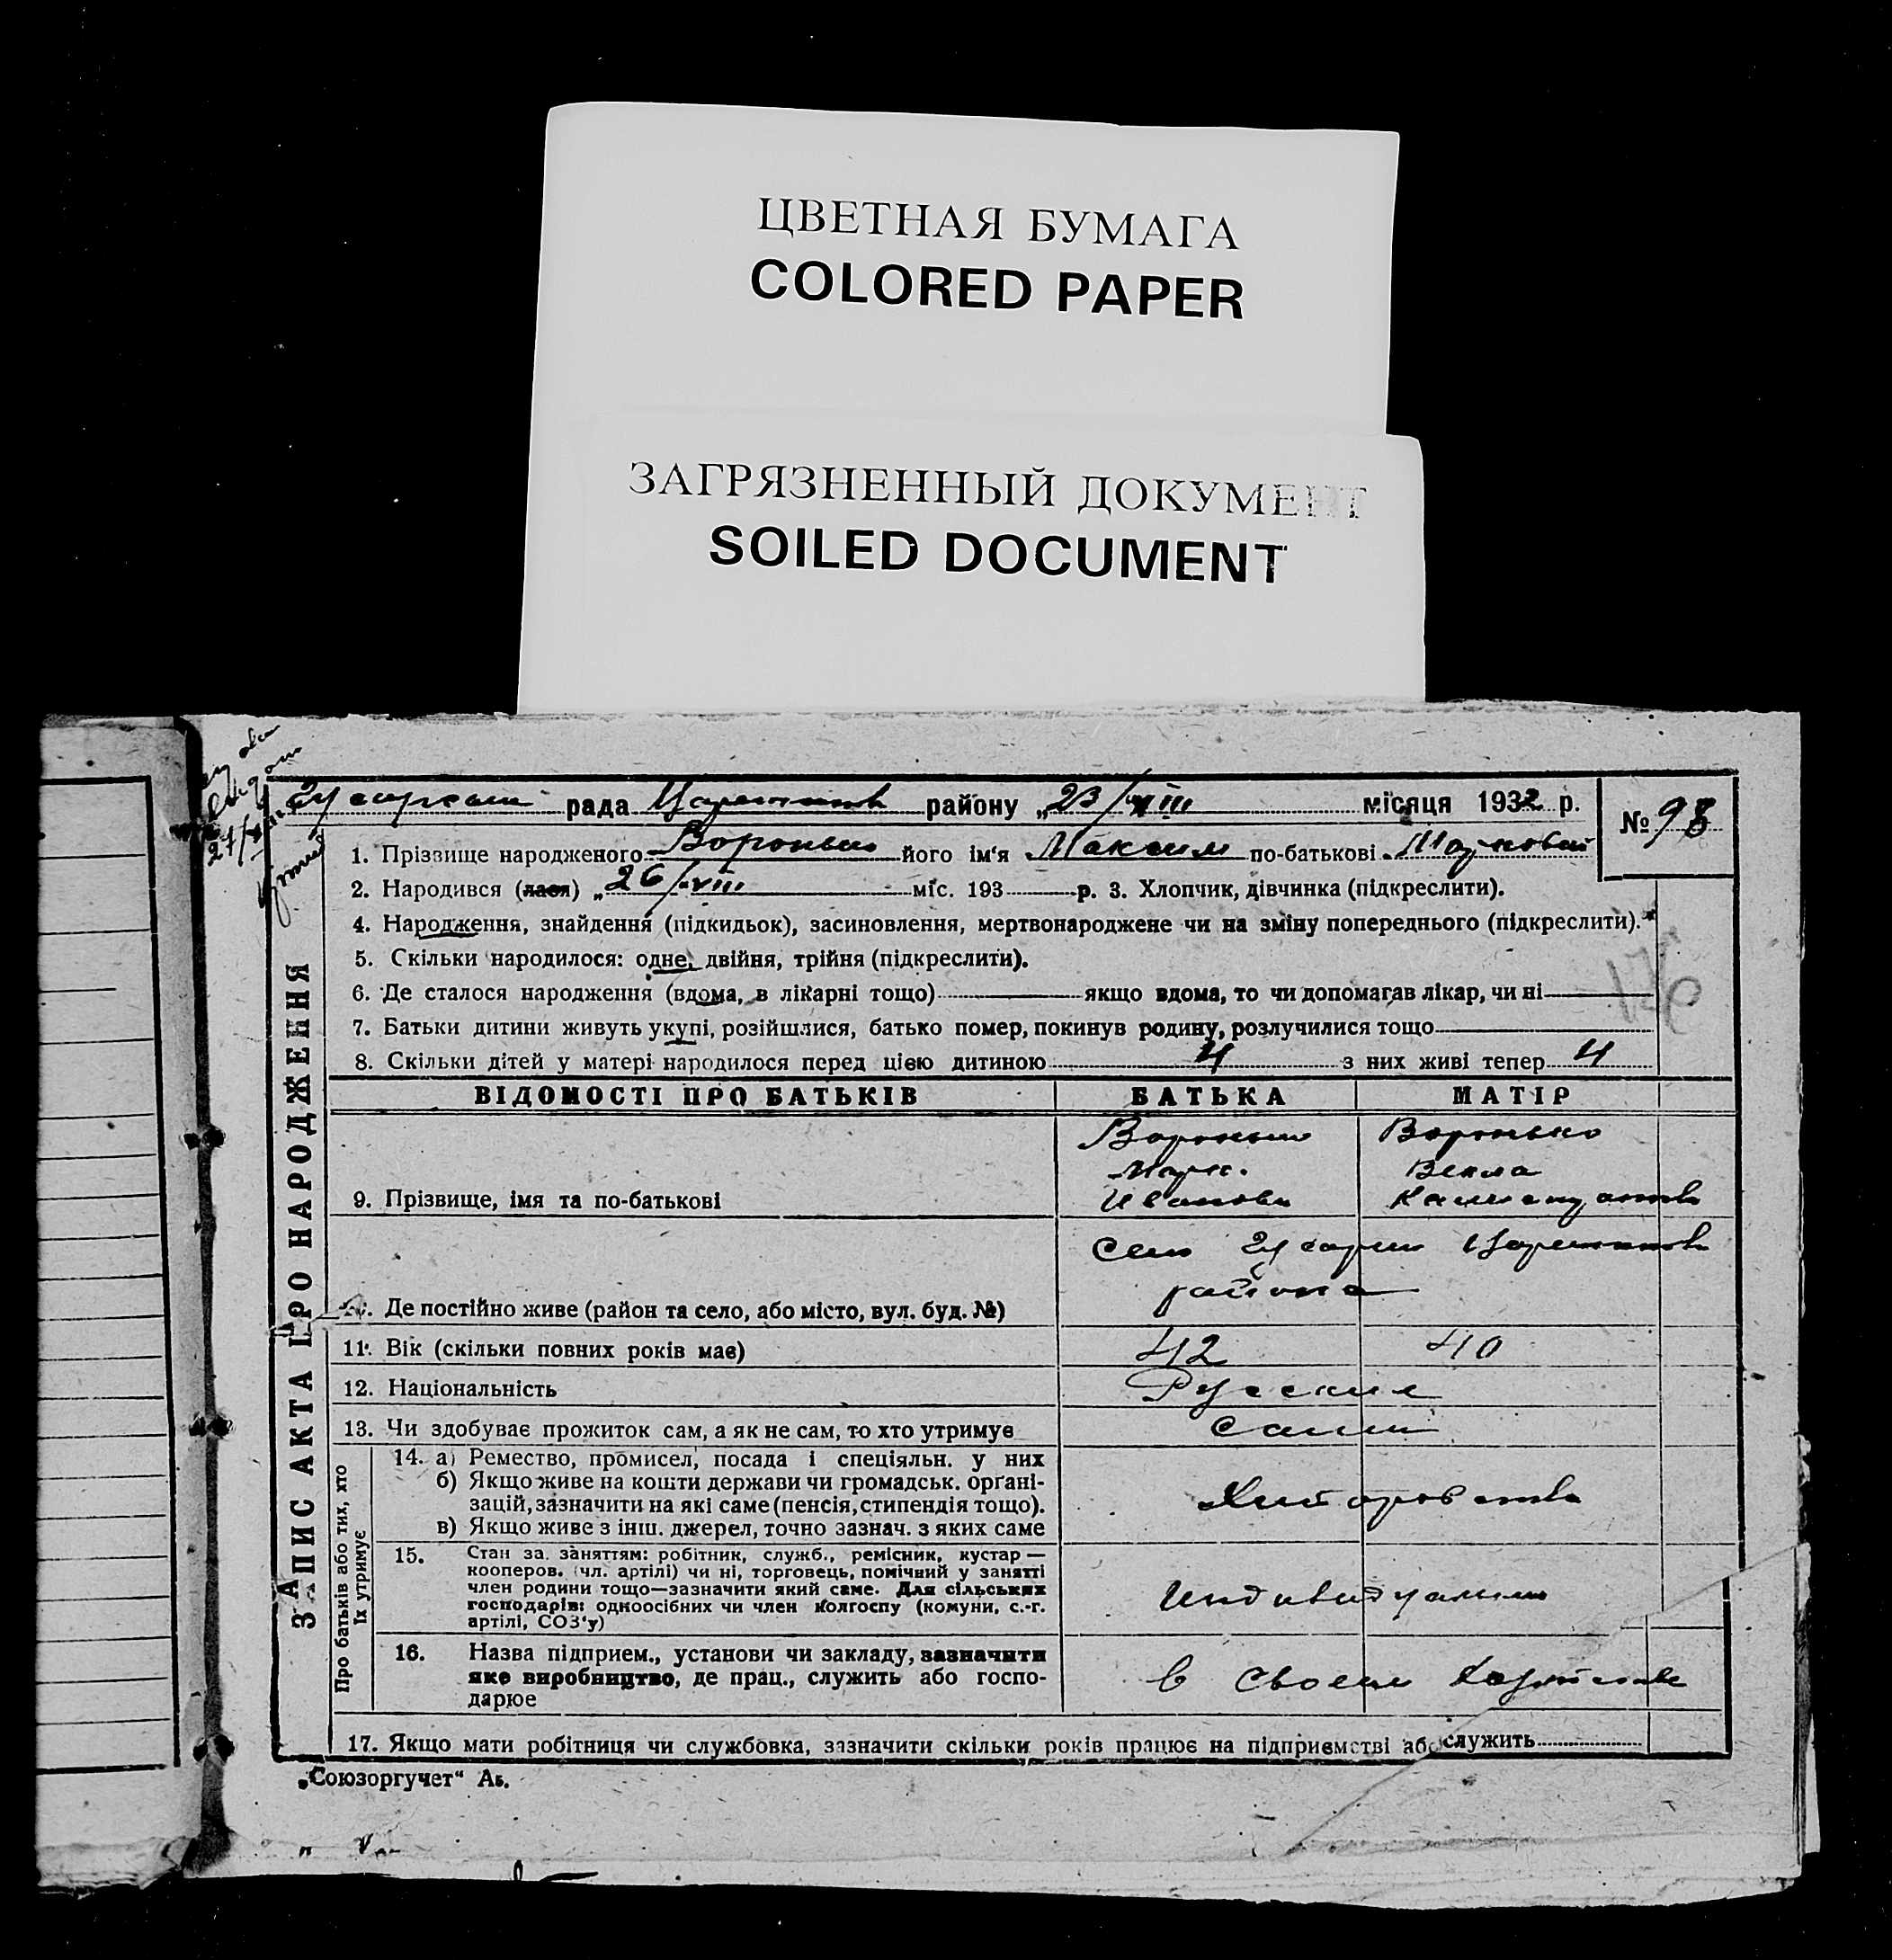 ЦВЕТНАЯ БУМАГА
COLORED PAPER
ЗАГРЯЗНЕННЫЙ ДОКУМЕНТ
SOILED DOCUMENT
рада района району „23/VIII місяця 1932 р.
№ 98
1. Прізвище народженого Воронько його ім'я Максим по-батькові Маркович
2. Народився (лася) „26/VIII міс. 193 р. 3. Хлопчик, дівчинка (підкреслити).
4. Народження, знайдення (підкидьок), засиновлення, мертвонароджене чи на зміну попереднього (підкреслити).*
5. Скільки народилося: одне, двійня, трійня (підкреслити).
176
6. Де сталося народження (вдома, в лікарні тощо) якщо вдома, то чи допомагав лікар, чи ні
7. Батьки дитини живуть укупі, розійшлися, батько помер, покинув родину, розлучилися тощо
8. Скільки дітей у матері народилося перед цією дитиною 4 з них живі тепер 4
ЗАПИС АКТА ПРО НАРОДЖЕННЯ
ВІДОМОСТІ ПРО БАТЬКІВ БАТЬКА МАТІР
Воронько Воронько
Марк Векла
9. Прізвище, імя та по-батькові Иванови
Село
района
10. Де постійно живе (район та село, або місто, вул. буд. №)
11. Вік (скільки повних років має) 42 40
12. Національність Русские
13. Чи здобуває прожиток сам, а як не сам, то хто утримує Сами
Про батьків або тих, хто
їх утримує
14. а) Ремество, промисел, посада і спеціяльн. у них
б) Якщо живе на кошти держави чи громадськ. органі-
зацій, зазначити на які саме (пенсія, стипендія тощо).
в) Якщо живе з інш. джерел, точно зазнач. з яких саме
15. Стан за. заняттям: робітник, служб., ремісник, кустар —
кооперов. (чл. артілі) чи ні, торговець, помічний у занятті
член родини тощо—зазначити який саме. Для сільських
господарів: одноосібних чи член колгоспу (комуни, с.-г.
артілі, СОЗ'у)
16. Назва підприєм., установи чи закладу, зазначити
яке виробництво, де прац., служить або госпо-
дарює
в своем
17. Якщо мати робітниця чи службовка, зазначити скільки років працює на підприємстві або служить
„Союзоргучет“ Аь.